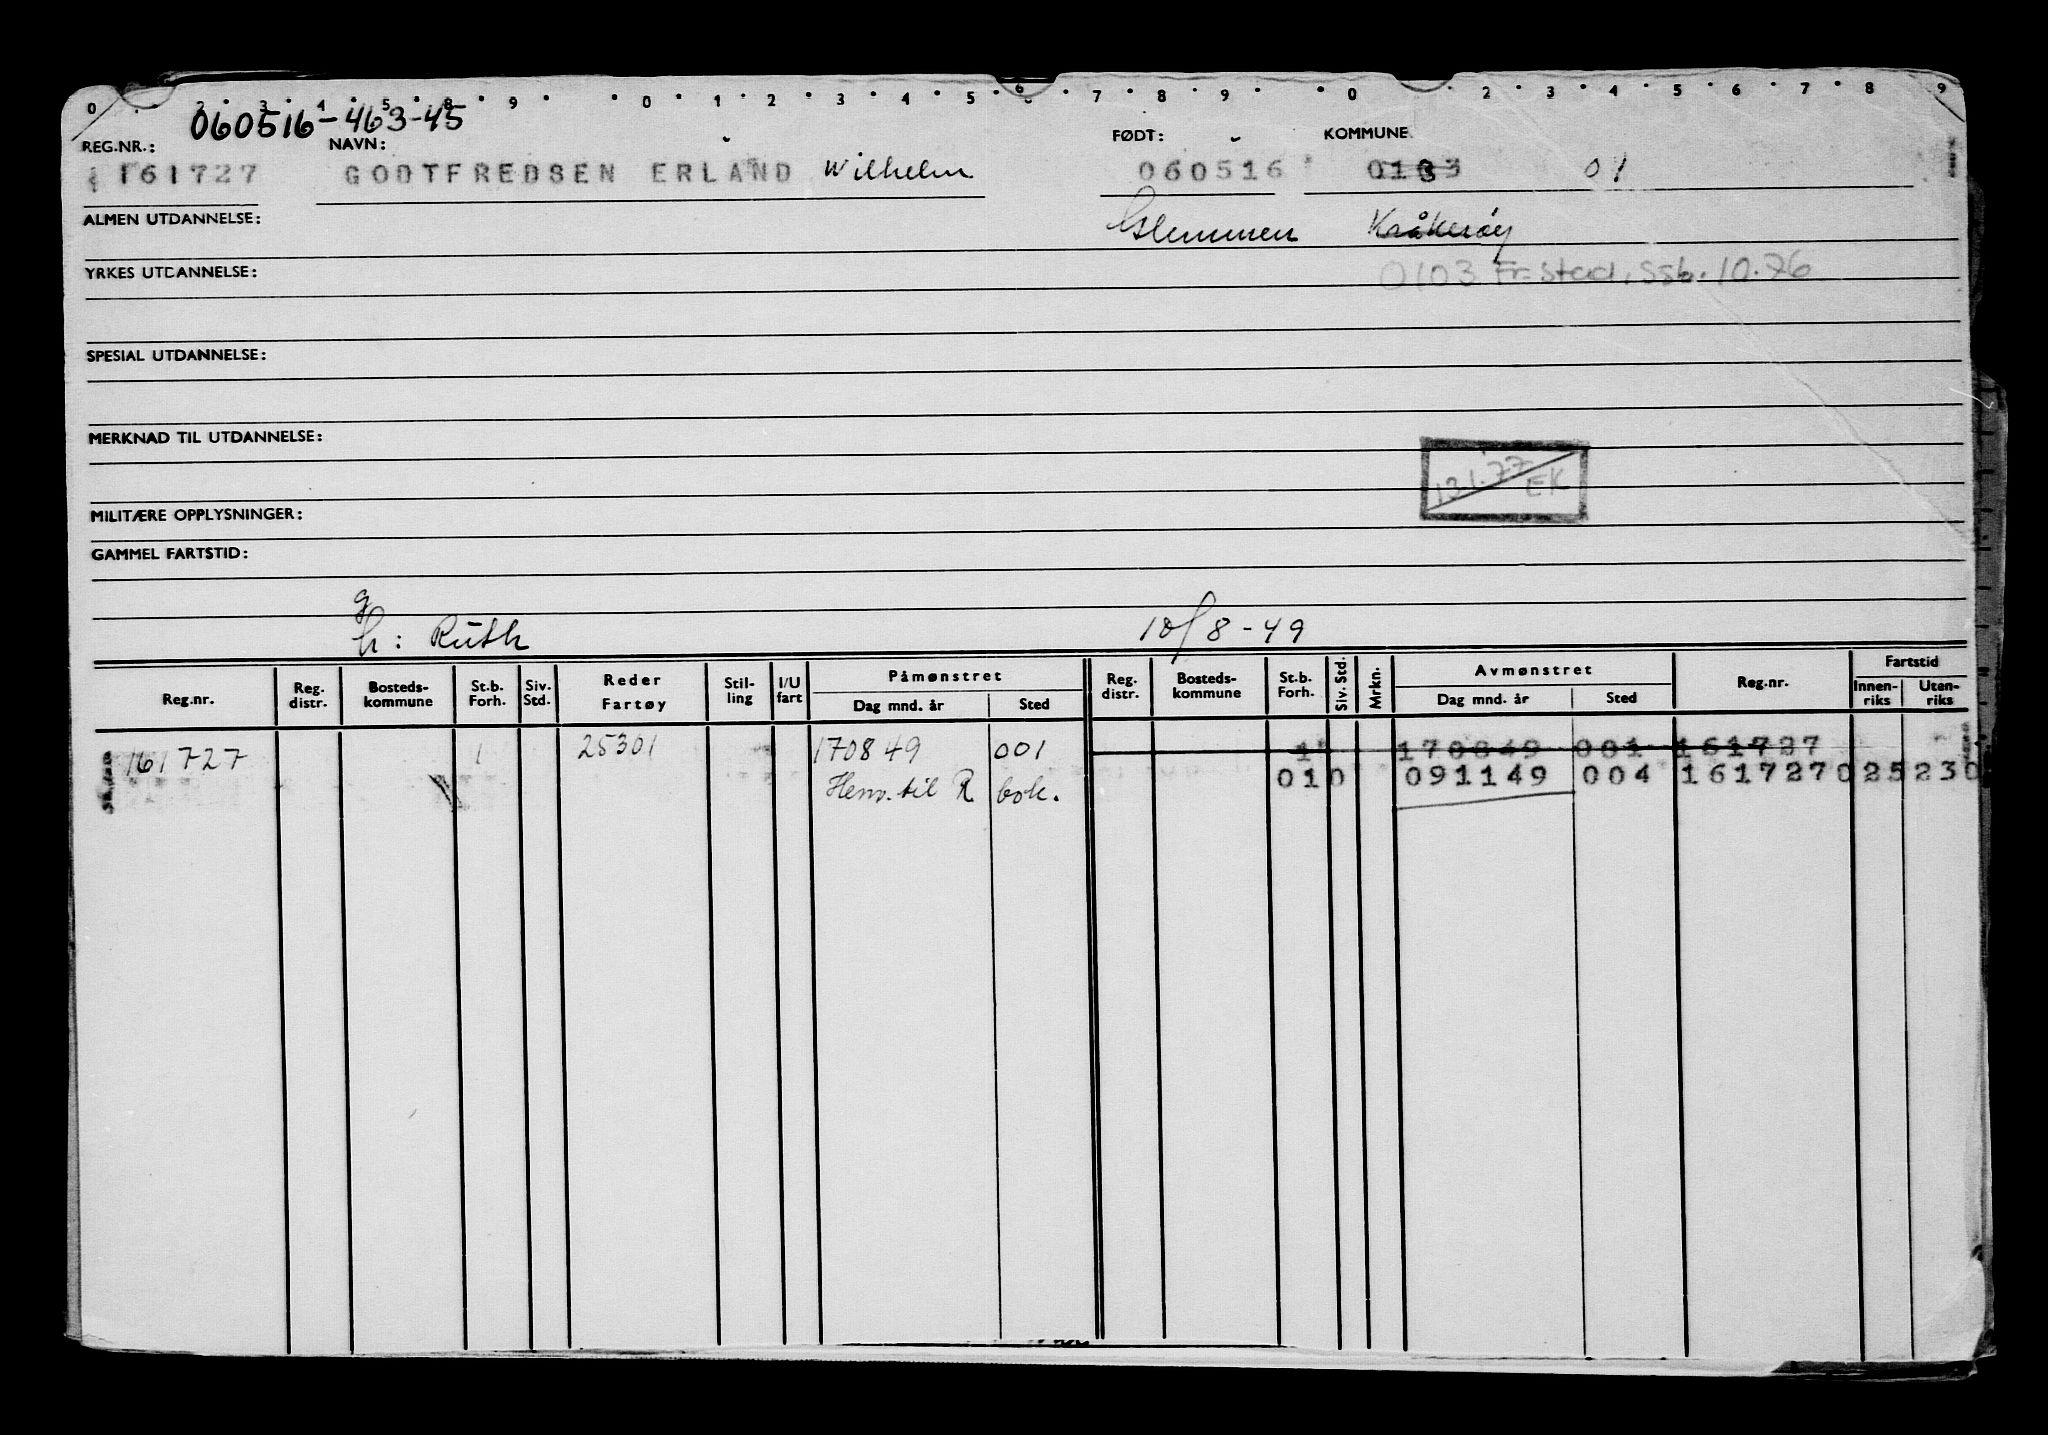 0 2 3 4 5 8 9 0 1 2 3 4 5 6 7 8 9 0 2 3 4 5 6 7 8 9
060516-463-45
REG.NR.: NAVN: FØDT: KOMMUNE
161727 GODTFREDSEN ERLAND Wilhelm 060516 0103 01
ALMEN UTDANNELSE: Glemmen Kråkerøy
YRKES UTDANNELSE: 0103 Fr.stad, Ssb. 10.76
SPESIAL UTDANNELSE:
MERKNAD TIL UTDANNELSE:
13.1.77 EK
MILITÆRE OPPLYSNINGER:
GAMMEL FARTSTID:
g
h: Ruth 18/8-49
Reg.nr. Reg. distr. Bosteds-kommune St.b. Forh. Siv. Std. Reder Fartøy Stil-ling I/U fart Påmønstret Dag mnd. år Sted Reg. distr. Bosteds-kommune St.b. Forh. Siv. Std. Mrkn. Avmønstret Dag mnd. år Sted Reg.nr. Fartstid Innen-riks Uten-riks
161727 1 25301 170849 001 1 170849 001 161727
Henv. til R bok. 010 091149 004 161727025230